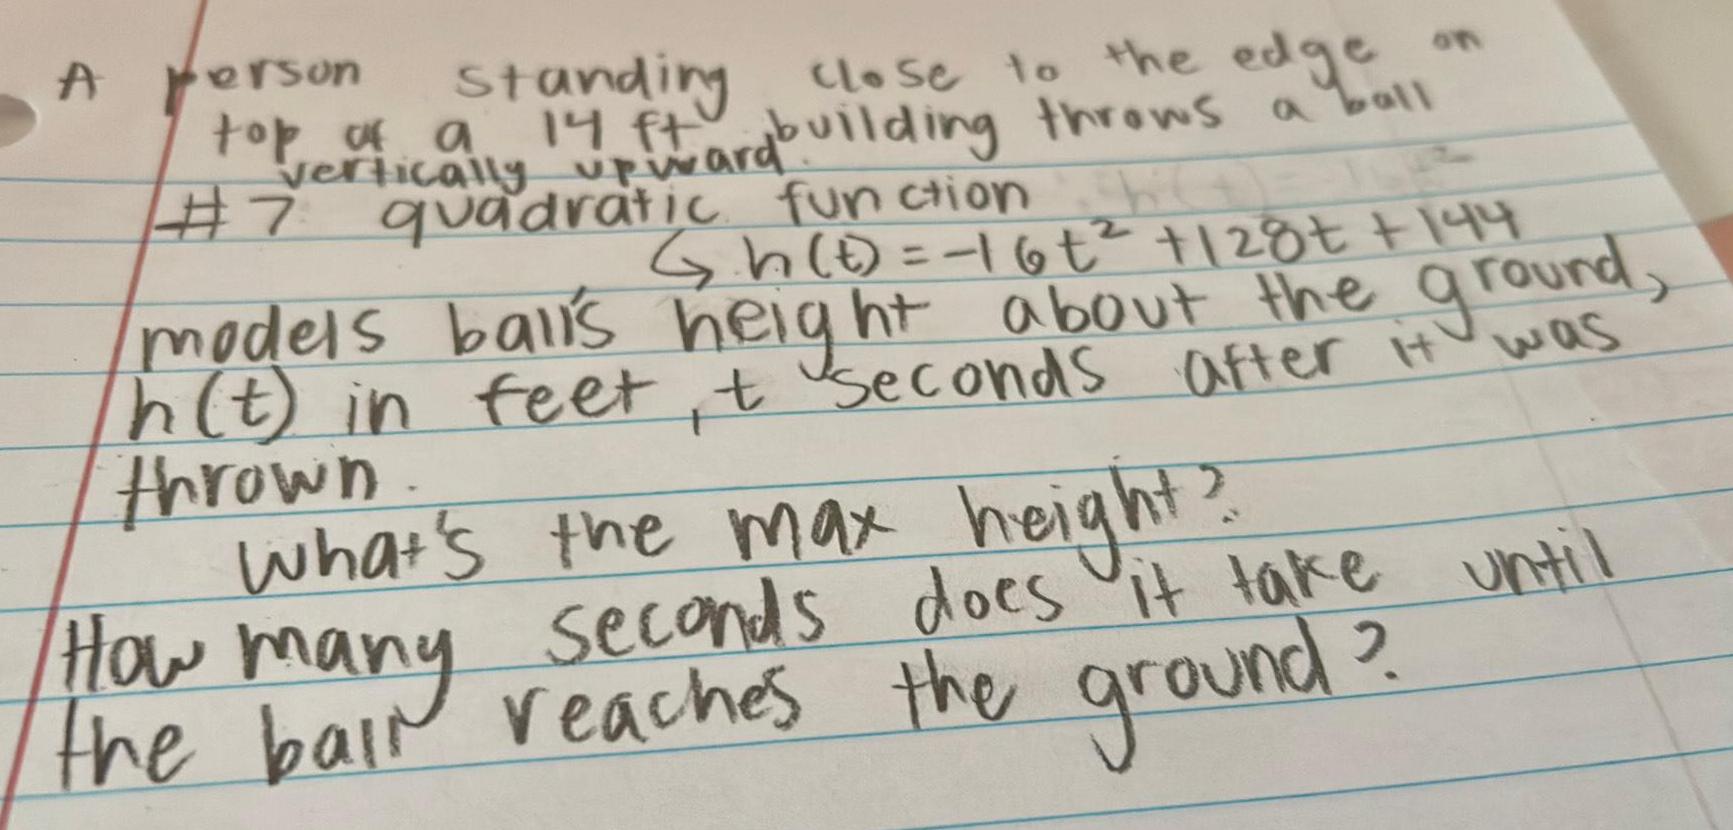 A person standing close to the edge on
top of a 14 ft building throws a ball
vertically upward.
#7 quadratic function
↳ h(t) = -16t² +128t + 144
models ball's height about the ground,
h(t) in feet, t seconds after it was
thrown.
What's the max height?
How many seconds does it take until
the ball reaches the ground?